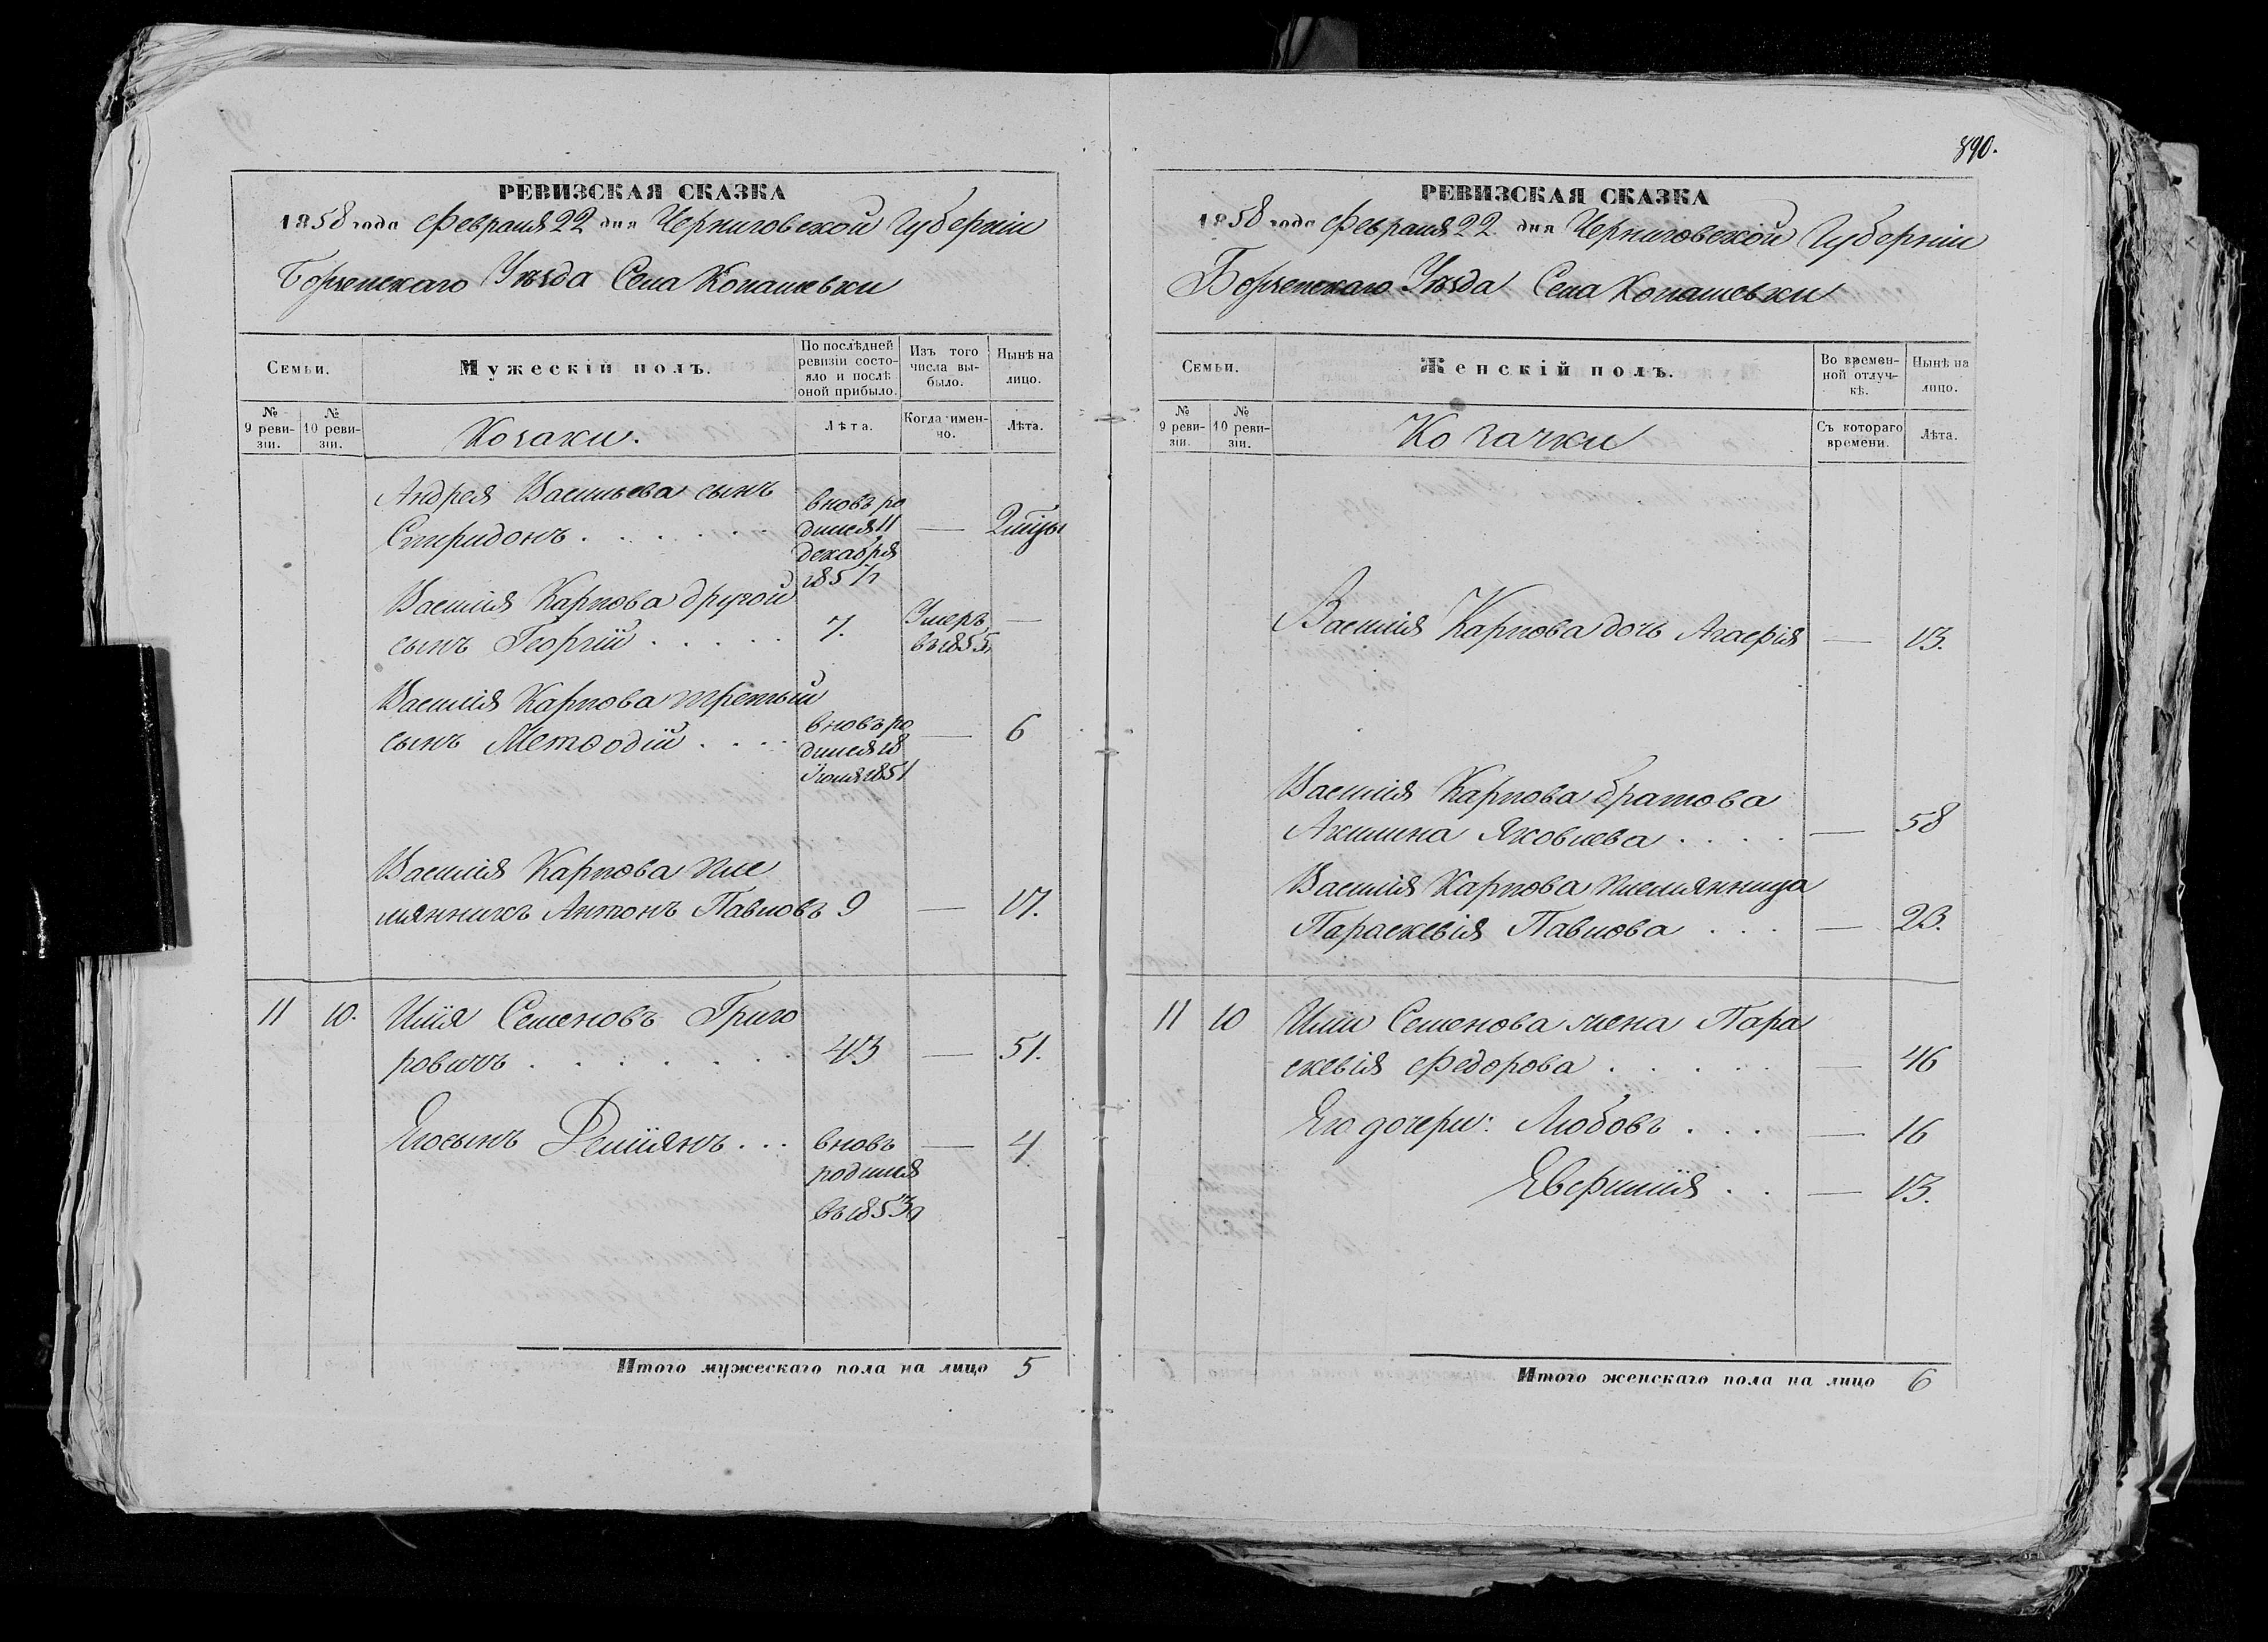 890.
РЕВИЗСКАЯ СКАЗКА
1858 года Февраля 22 дня Черниговской Губерніи
Борзенскаго Уѣзда Села Копашевки
Семьи.
Мужескій полъ.
По послѣдней ревизіи состояло и послѣ оной прибыло.
Изъ того числа выбыло.
Нынѣ на лицо.
№ 9 ревизіи.
№ 10 ревизіи.
Козаки.
Лѣта.
Когда именно.
Лѣта.
Андрея Васильева сынъ
Спиридонъ . . . . . .
вновь ро
дился 11
декабря
1857
—
2 мѣсцы
Василія Карпова другой
сынъ Георгій . . . . .
7.
Умеръ
въ 1855
—
Василія Карпова третьій
сынъ Метѳодій . . . .
вновь ро
дился 18
Іюля 1851
—
6
Василія Карпова пле
мянникъ Антонъ Павловъ 9 — 17.
11 10. Илія Семеновъ Григо
ровичъ . . . . . . 43 — 51.
Его сынъ Деміянъ . . .
вновь
родился
въ 1853
—
4
Итого мужескаго пола на лицо 5
РЕВИЗСКАЯ СКАЗКА
1858 года Февраля 22 дня Черниговской Губерніи
Борзенскаго Уѣзда Села Копашевки
Семьи.
Женскій полъ.
Во временной отлучкѣ.
Нынѣ на лицо.
№ 9 ревизіи.
№ 10 ревизіи.
Козачки
Съ котораго времени.
Лѣта.
Василія Карпова дочь Агафія — 13.
Василія Карпова братова
Акилина Яковлева . . . . — 58
Василія Карпова племянница
Параскевія Павлова . . . — 23.
11 10 Иліи Семенова жена Пара
скевія Федорова . . . . . — 46
Его дочери: Любовь . . . — 16
Евфимія . . — 13.
Итого женскаго пола на лицо 6